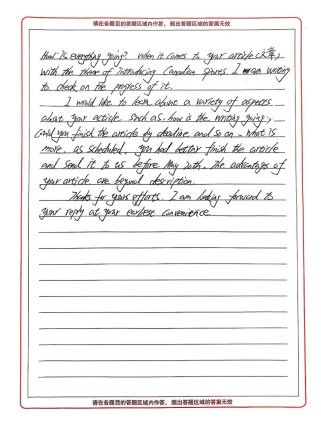 请在各题目的答题区域内作答，超出答题区域的答案无效
How is everything going? When it comes to your article(文章)
with the theme of introducing Canadian sports I am writing
to check on the progress of it.
I would like to learn about a variety of aspects
about your article such as, how is the writing going,
Could you finish the article by deadline and so on. What is
more, as scheduled, you had better finish the article
and send it to us before May 20th. The advantages of
your article are beyond description.
Thanks for yours efforts. I am looking forward to
your reply at your earliest convenience.
请在各题目的答题区域内作答，超出答题区域的答案无效